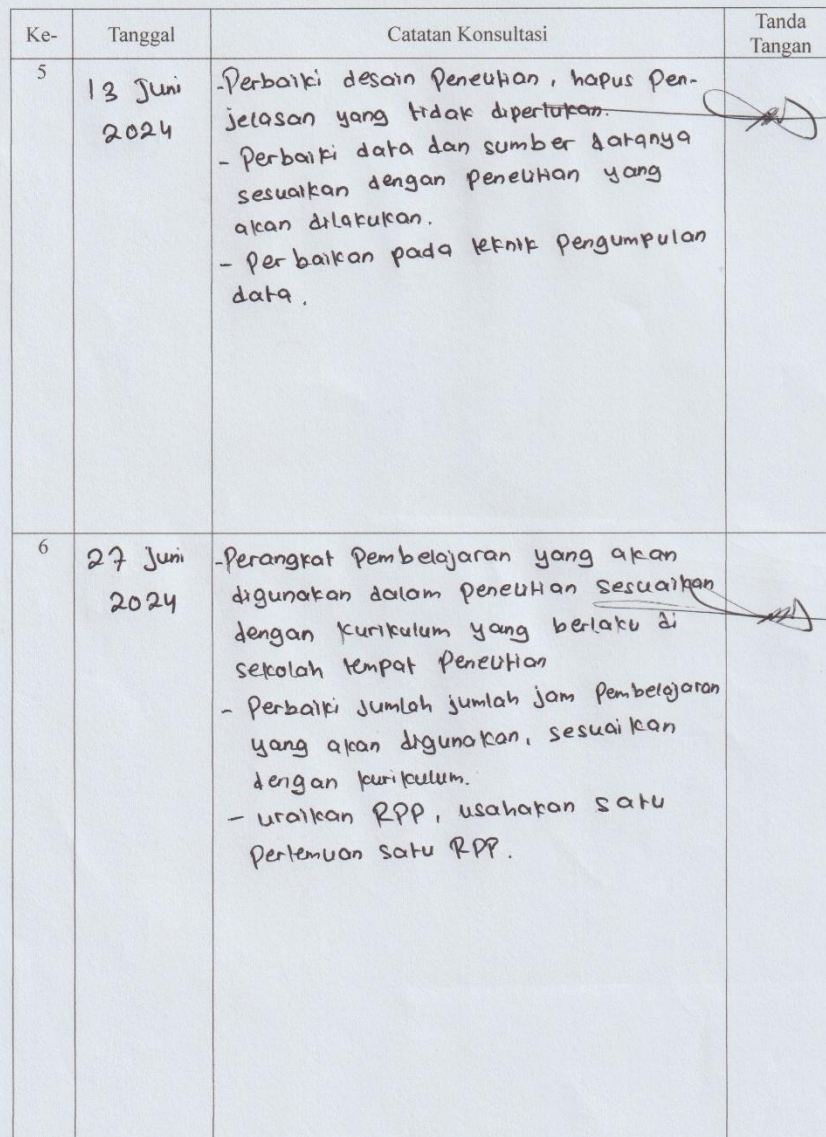 Ke- Tanggal Catatan Konsultasi Tanda
Tangan
5 13 Juni -Perbaiki desain Penelitian, hapus Pen-
2024 jelasan yang tidak diperlukan.
- Perbaiki data dan sumber datanya
sesuaikan dengan penelitian yang
akan dilakukan.
- Perbaikan pada teknik Pengumpulan
data.
6 27 Juni -Perangkat Pembelajaran yang akan
2024 digunakan dalam penelitian sesuaikan
dengan kurikulum yang berlaku di
sekolah tempat Penelitian
- Perbaiki Jumlah jumlah jam Pembelajaran
yang akan digunakan, sesuaikan
dengan kurikulum.
- uraikan RPP, usahakan satu
Pertemuan satu RPP.